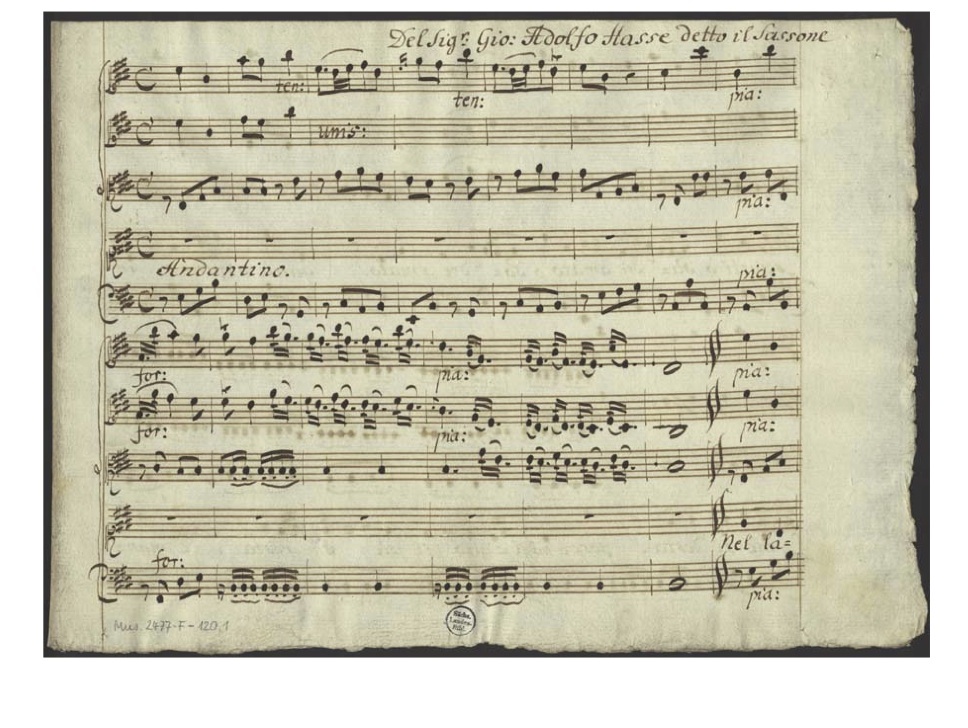 Del Sigr. Gio: Adolfo Hasse detto il Sassone
ten: ten: pia:
unis:
pia:
Andantino. pia:
for: pia: pia:
for: pia: pia:
Nel la=
for:
pia:
Mus. 2477-F-120,1
Sächs.
Landes-
Bibl.